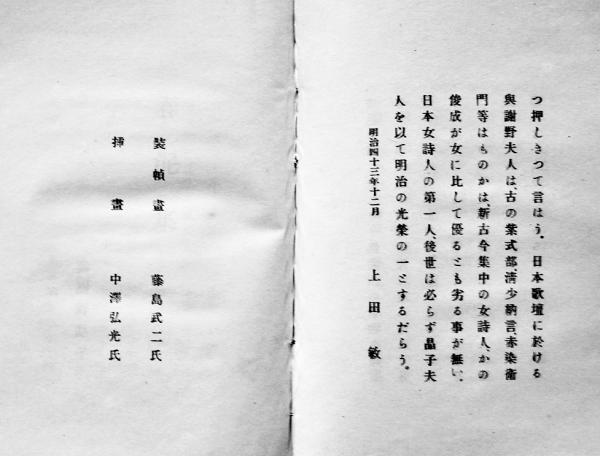 つ押しきつて言はう。日本歌壇に於ける
與謝野夫人は、古の紫式部、淸少納言、赤染衞
門等はものかは、新古今集中の女詩人、かの
俊成が女に比して優るとも劣る事が無い。
日本女詩人の第一人、後世は必らず晶子夫
人を以て明治の光榮の一とするだらう。
明治四十三年十二月
上田敏
裝幀畫 藤島武二氏
挿畫 中澤弘光氏